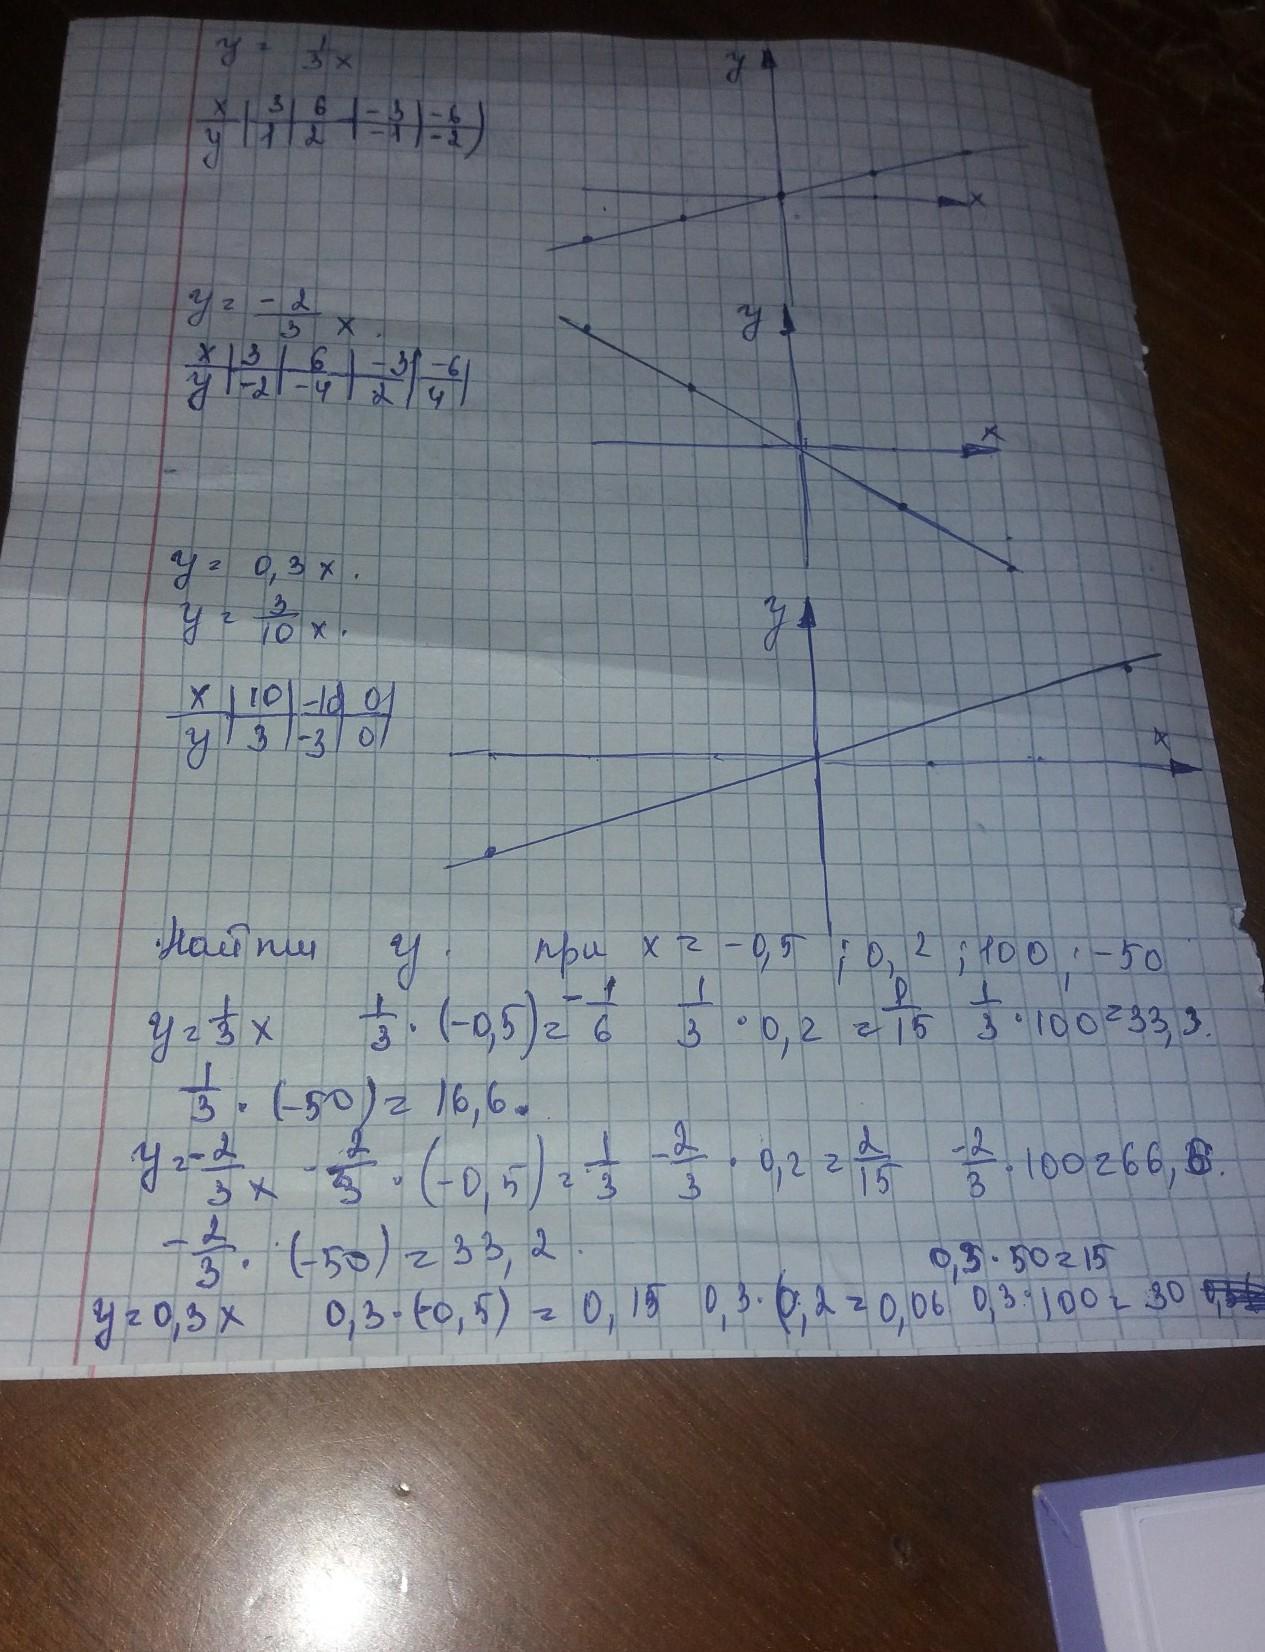 y = 1/3 x
x | 3 | 6 | -3 | -6
y | 1 | 2 | -1 | -2
y
x
y = -2/3 x.
x | 3 | 6 | -3 | -6
y | -2 | -4 | 2 | 4
y
x
y = 0,3 x.
y = 3/10 x.
x | 10 | -10 | 0
y | 3 | -3 | 0
y
x
Найти y. при x = -0,5 ; 0,2 ; 100 ; -50
y = 1/3 x 1/3 · (-0,5) = -1/6 1/3 · 0,2 = 1/15 1/3 · 100 = 33,3.
1/3 · (-50) = 16,6.
y = -2/3 x -2/3 · (-0,5) = 1/3 -2/3 · 0,2 = 2/15 -2/3 · 100 = 66,6.
-2/3 · (-50) = 33,2.
0,3 · 50 = 15
y = 0,3 x 0,3 · (-0,5) = 0,15 0,3 · (0,2 = 0,06 0,3 · 100 = 30